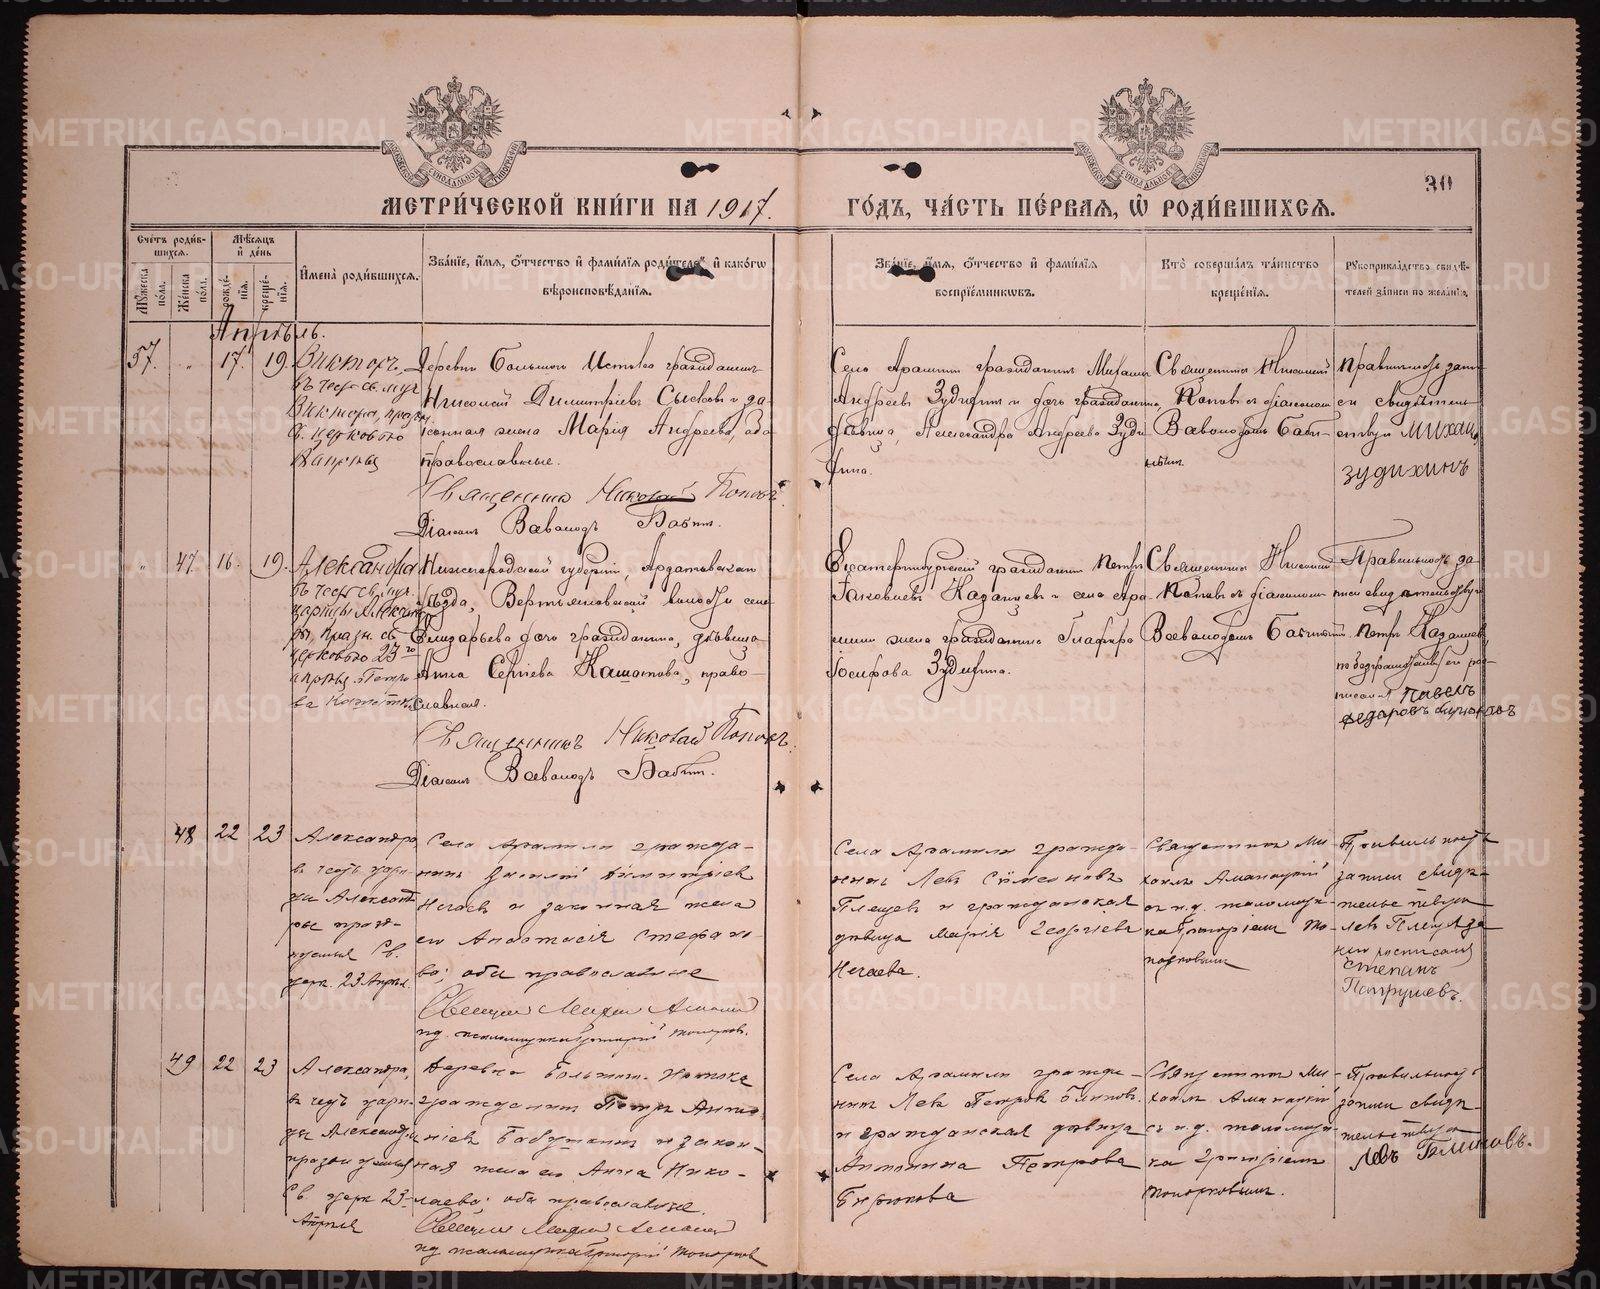 30
МЕТРИ́ЧЕСКОЙ КНИ́ГИ НА 1917.
ГО́ДЪ, ЧА́СТЬ ПЕ́РВАЯ, Ѡ҆ РОДИ́ВШИХСЯ.
Сче́тъ роди́в-
шихся.
Му́жеска
по́ла.
Же́нска
по́ла.
Мѣ́сяцъ
и҆ де́нь
рожде́-
нїя.
креще́-
нїя.
И҆мена̀ роди́вшихся.
Зва́нїе, и҆́мя, ѻ҆́тчество и҆ фами́лїя роди́телей и҆ како́гѡ
вѣроисповѣ́данїя.
Зва́нїе, и҆́мя, ѻ҆́тчество и҆ фами́лїя
воспрїе́мникѡвъ.
Кто̀ соверша́лъ та́инство
креще́нїя.
Рукоприкла́дство свидѣ́-
телей за́писи по жела́нїю.
Апрѣль.
57. " 17. 19.
Викторъ,
въ честь св. муч.
Виктора, празн.
св. церковью
Апрѣля
Деревни Большого Истока гражданинъ
Николай Димитріевъ и за-
конная жена Марія Андреева, оба
православные.
Священникъ Николай Поповъ
Діаконъ Всеволодъ Бабинъ.
Села Арамили гражданинъ Михаилъ
Андреевъ Зудихинъ и дочь гражданина,
дѣвица, Александра Андреева Зуди-
хина.
Священникъ Николай
Поповъ съ діакономъ
Всеволодомъ Баби-
нымъ.
Правильность запи-
си свидѣтель-
ствую Михаилъ
Зудихинъ
" 47. 16. 19.
Александра
въ честь св. муч.
царицы Александ-
ры, празн. св.
церковью 23го
апрѣля.
Нижегородской губерніи, Ардатовскаго
уѣзда, Вертьяновской волости села
Елизарьева дочь гражданина, дѣвица
Анна Сергіева Кашаткова, право-
славная.
Священникъ Николай Поповъ.
Діаконъ Всеволодъ Бабинъ.
Екатеринбургскій гражданинъ Петръ
Іаковлевъ Казанцевъ и села Ара-
мили жена гражданина Глафира
Іосифова Зудихина.
Священникъ Николай
Поповъ съ діакономъ
Всеволодомъ Бабинымъ.
Правильность за-
писи свидѣтельствую
Петръ Казанцевъ
Павелъ
Федоровъ
48 22 23
Александра
въ честь цари-
цы Александ-
ры празд-
нуемыя Св.
церк. 23 Апрѣля.
Села Арамили гражда-
нинъ Василій Димитріевъ
Нечаевъ и законная жена
его Анастасія Стефано-
ва; оба православные
Священникъ Михаилъ
и.д. псаломщика Григорій Топорковъ.
Села Арамили гражда-
нинъ Левъ Симеоновъ
Плещевъ и гражданская
дѣвица Марія Георгіева
Нечаева.
Священникъ Ми-
хаилъ
съ и.д. псаломщи-
ка Григоріемъ То-
порковымъ
Правильность
записи свидѣ-
тельствую
Левъ за
него росписался
Степанъ
Патрушевъ.
49 22 23
Александра,
въ честь цари-
цы Александры
празднуемыя
Св. церк 23
Апрѣля
Деревни Большого Истока
гражданинъ Петръ
Бабушкинъ и закон-
ная жена его Анна Нико-
лаева; оба православные.
Священникъ Михаилъ
и.д. псаломщика Григорій Топорковъ
Села Арамили гражда-
нинъ Левъ Петровъ Блиновъ.
и гражданская дѣвица
Антонина Петрова
Бирюкова
Священникъ Ми-
хаилъ
съ и.д. псаломщи-
ка Григоріемъ
Топорковымъ.
Правильность
записи свидѣ-
тельствую
Левъ Блиновъ.
METRIKI.GASO-URAL.RU